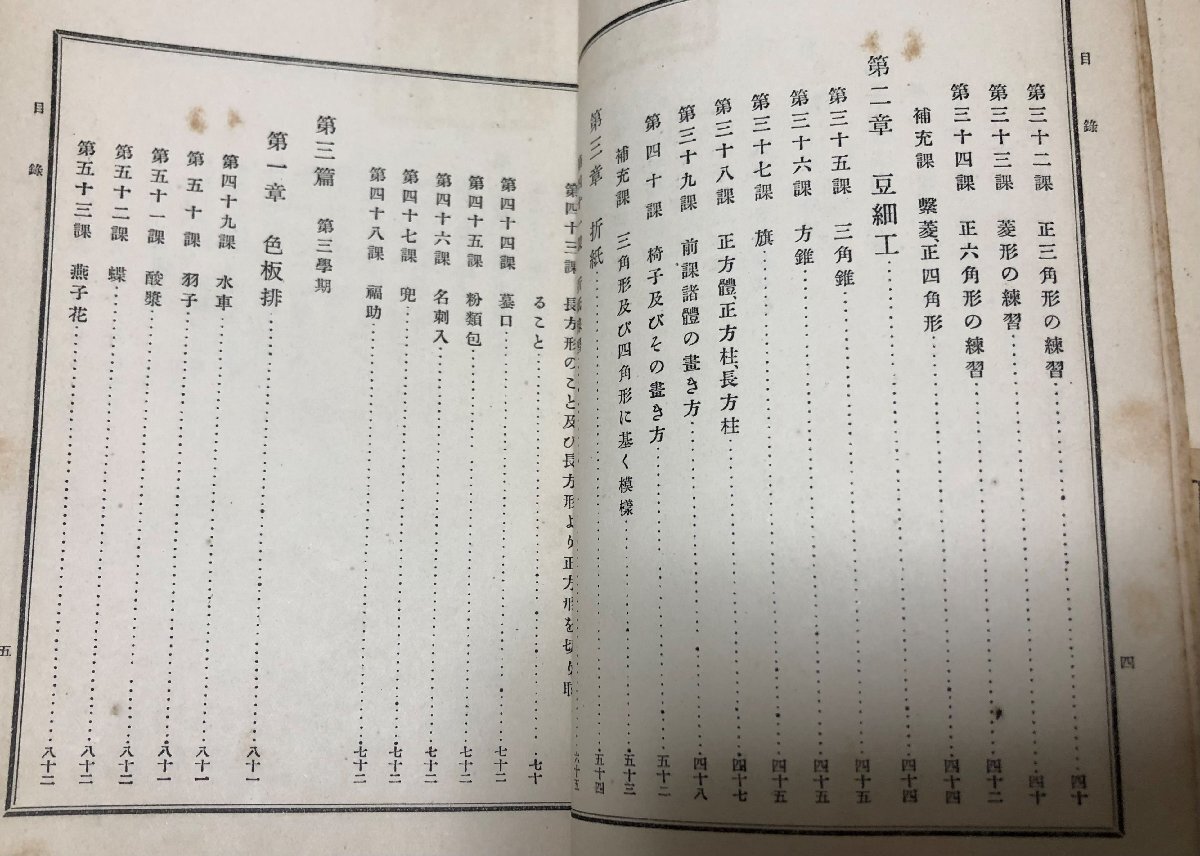 目錄
第三十二課 正三角形の練習 四十
第三十三課 菱形の練習 四十
第三十四課 正六角形の練習 四十二
補充課 繫菱、正四角形 四十四
第二章 豆細工 四十四
第三十五課 三角錐 四十五
第三十六課 方錐 四十五
第三十七課 旗 四十五
第三十八課 正方體、正方柱、長方柱 四十七
第三十九課 前課諸體の畫き方 四十八
第四十課 椅子及びその畫き方 五十二
補充課 三角形及び四角形に基く模樣 五十三
第三章 折紙 五十四
四
目錄
六十五
第四十三課 長方形のこと及び長方形より正方形を切り取
ること 七十
第四十四課 蟇口 七十二
第四十五課 粉類包 七十二
第四十六課 名刺入 七十二
第四十七課 兜 七十二
第四十八課 福助 七十二
第三篇 第三學期
第一章 色板排 八十一
第四十九課 水車 八十一
第五十課 羽子 八十一
第五十一課 酸漿 八十二
第五十二課 蝶 八十二
第五十三課 燕子花 八十二
五